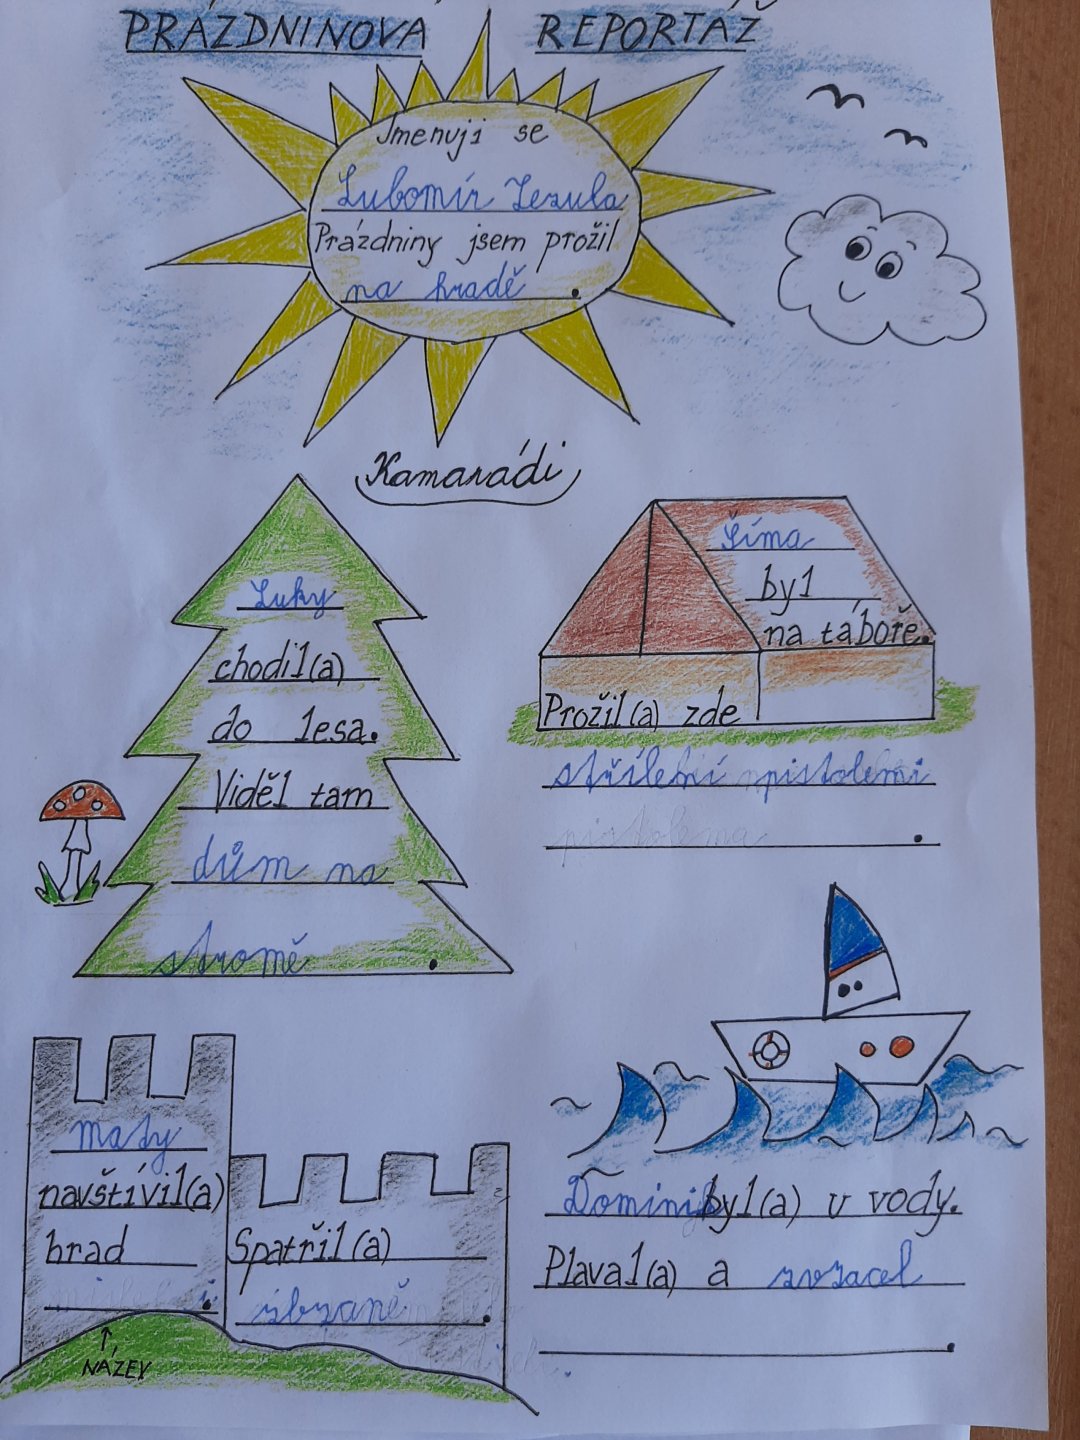 PRÁZDNINOVÁ REPORTÁŽ
Jmenuji se
Lubomír Jezula
Prázdniny jsem prožil
na hradě.
Kamarádi
Luky
chodil(a)
do lesa.
Viděl tam
dům na
stromě.
Šíma
byl
na táboře.
Prožil(a) zde
střílení pistolemi
.
Maty
navštívil(a)
hrad
NÁZEV
Spatřil(a)
zbraně.
Dominik byl(a) u vody.
Plaval(a) a
.